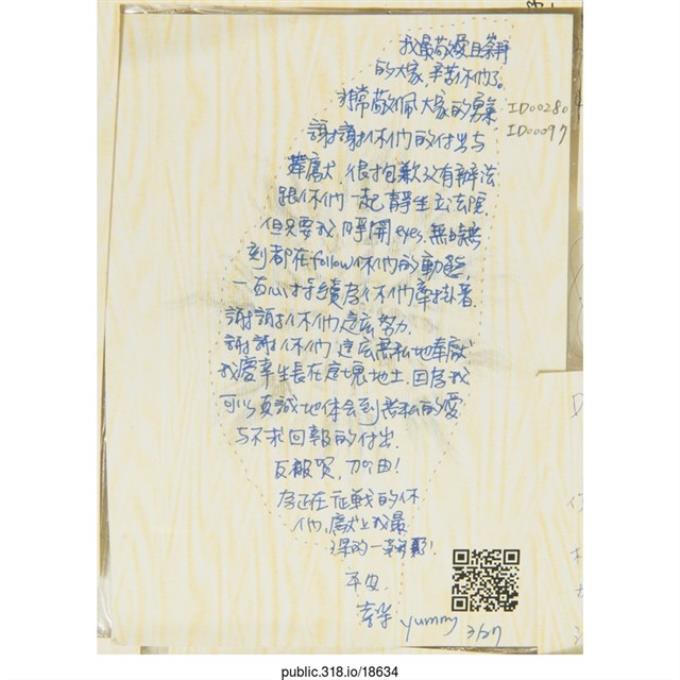 我最敬愛且
的大家,辛苦你們了。
非常敬佩大家的勇氣
ID00280
ID00097
謝謝你們的付出與
奉獻,很抱歉沒有辦法
跟你們一起靜坐立法院,
但只要我睜開eyes,無時無
刻都在follow你們的動態,
一直心持續為你們牽掛著.
謝謝你們這麼努力.
謝謝你們這麼無私地奉獻
我慶幸生長在這塊地土,因為我
可以真誠地体会到無私的愛
與不求回報的付出.
反服貿,加油!
為正在征戰的你
們,獻上我最
深的一
平安.
yummy 3/27
public.318.io/18634